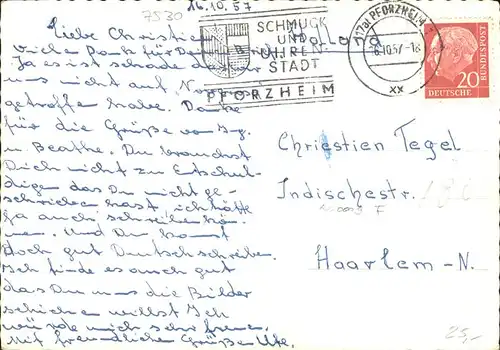 7530
16.10.57
Liebe Christien
Vielen Dank für Dein
Holland
Ja es ist schade das wir
uns nicht auf
getroffen habe. Danke
für die Grüße von
u. Beathe. Du brauchst
Dich nicht zu Entschul-
digen das Du nicht ge-
schrieben hast, ich hätte
ja auch schreiben kön-
nen. Und Du kanst
doch gut Deutsch schreiben.
Ich finde es auch gut
das Du uns die Bilder
schicken willst Ich
würde mich sehr freuen.
Mit freundlichen Grüßen Ute.
SCHMUCK
UND
UHREN
STADT
PFORZHEIM
(17a) PFORZHEIM
16.10.57-16
xx
20
DEUTSCHE
BUNDESPOST
Chriestien Tegel
Indischestr. 186
Haarlem-N.
25,-